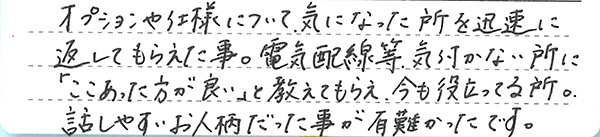 オプションや仕様について、気になった所を迅速に
返してもらえた事。電気配線等、気付かない所に
「ここあった方が良い」と教えてもらえ、今も役立ってる所。
話しやすいお人柄だった事が有難かったです。